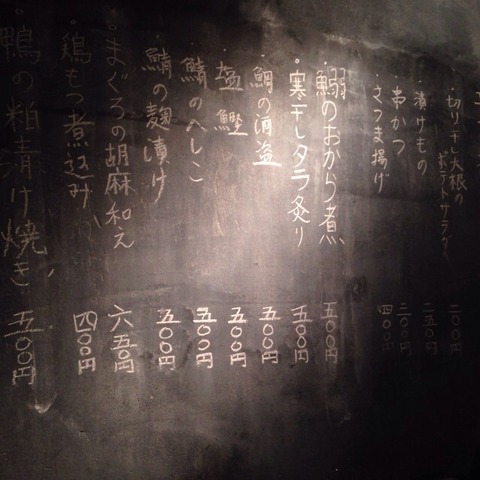 切り干し大根の
ポテトサラダ 二〇〇円
・漬けもの 二五〇円
・串かつ 二〇〇円
・さつま揚げ 四〇〇円
・鰯のおから煮 五〇〇円
・寒干しタラ炙り 五〇〇円
・鯛の酒盗 五〇〇円
・塩鰹 五〇〇円
・鯖のへしこ 五〇〇円
・鯖の麹漬け 五〇〇円
・まぐろの胡麻和え 六五〇円
・鶏もつ煮込み 四〇〇円
・鴨の粕漬け焼き 五〇〇円